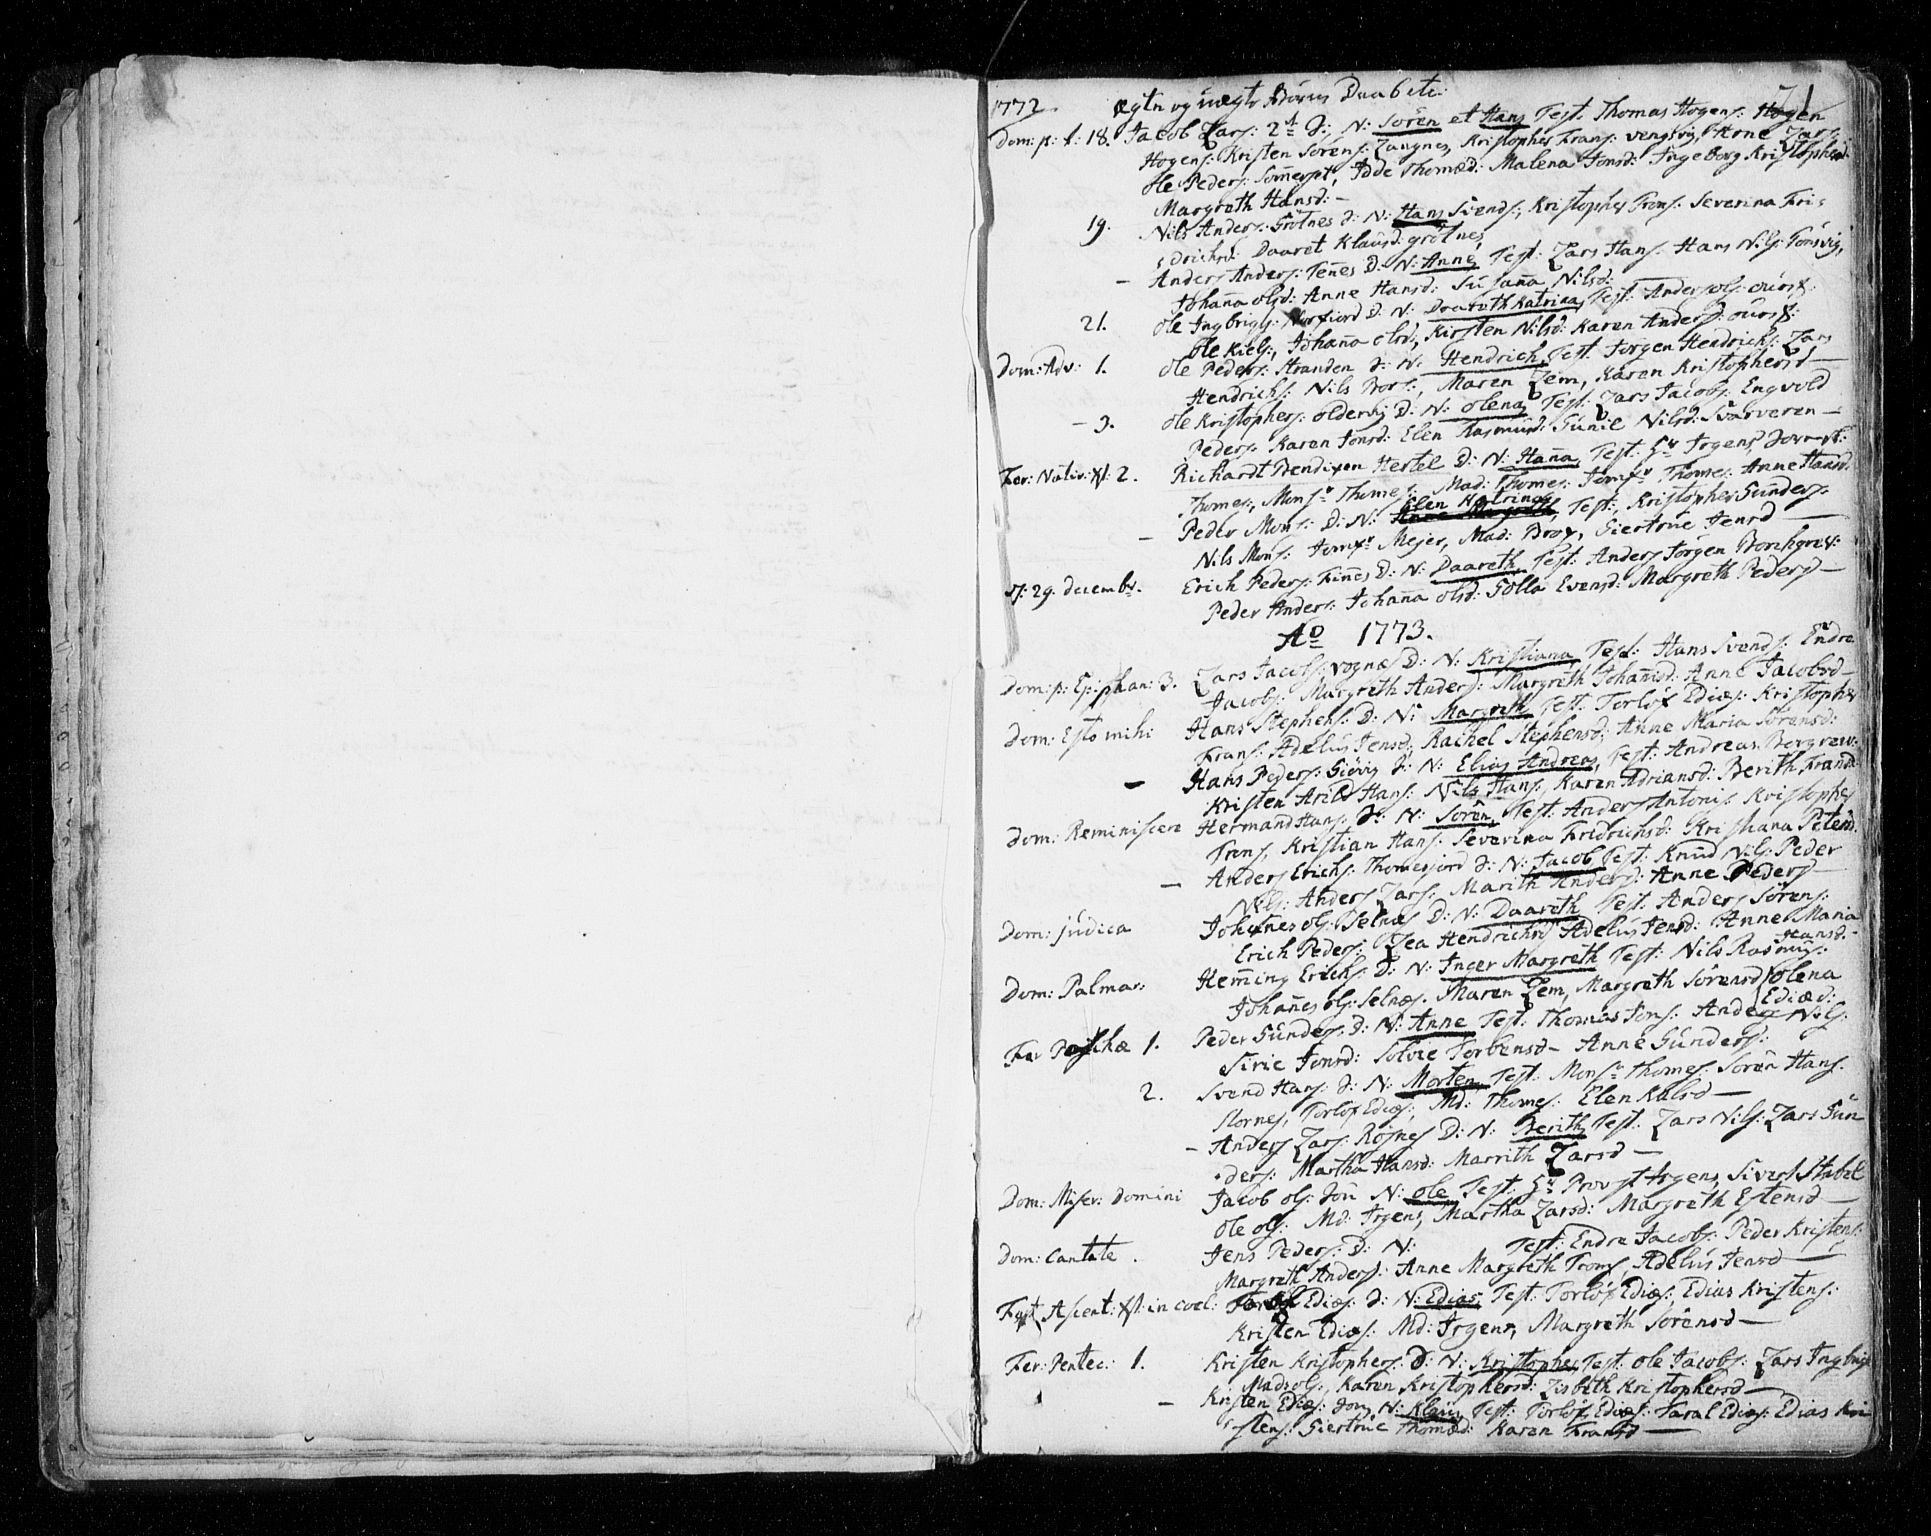 71
1772. ægte og uægte Børns Daab etc:
Dom: p: t: 18. Jacob Lars: 2de S: N: Sören et Hans Test. Thomas Hogens: Hogen
Hogens: Kristen Sörens: Langnes, Kristopher Frans: vengsvig, Arne Lars:
Ole Peders: Idde Thomæd: Malena Jonsd: Ingeborg Kristophersd:
Margreth Hansd: –
19. Nils Anders: Grötnes S: N: Hans Svends:, Kristopher Frans: Severina Fri-
drichsd: Daaret Klausd: grötnes,
– Anders Anders: Tennes D: N: Anne, Test: Lars Hans: Hans Nils: Tönsvig,
Johanna olsd: Anne Hansd: Susanna Nilsd:
21. Ole Ingbrigs: Norfiord D: N: Daareth Katrina, Test: Anders ols:
Ole Kiels:, Johanna olsd:, Kirsten Nilsd: Karen Andersd:
Dom: Adv: 1. Ole Peders: Stranden S: N: Hendrich, Test. Jörgen Hendrichs: Lars
Hendrichs: Nils Mar: Maren Lem, Karen Kristophersd –
– 3. Ole Kristophers: oldervig D: N: olena, Test: Lars Jacobs: Engvold
Peders: Karen Jonsd: Elen Rasmusd: Gunil Nilsd: Svarveren –
Fer: Nativ: Xt: 2. Richardt Bendixen Hertel D: N: Hanna, Test: Hr Irgens,
Thomes:, Monsr Thomes: Mad: Thomes: Jomfr Thomes: Anne Hansd:
– Peder Mons: D: N: Elen Katrina, Test:, Kristopher Gunders:
Nils Mons: Jomfr Mejer, Mad: Brox, Giertrue Jensd –
d: 29 decembr. Erich Peders: Finnes D: N: Daareth, Test: Anders Jörgen Borchgrev:
Peder Anders: Johanna olsd: Golla Evensd: Margreth Pedersd –
Ao 1773.
Dom: p: Epiphan: 3. Lars Jacobs: vognæs D: N: Kristiana, Test: Hans Svends: Endre
Jacobs: Margreth Andersd: Margreth Johansd: Anne Jacobsd –
Dom: Esto mihi Hans Stephens: D: N: Margreth, Test: Torlöf Ediæs: Kristopher
Frans: Adelus Jensd: Rachel Stephensd: Anne Maria Sörensd:
– Hans Peders: Giövig S: N: Elias Andreas, Test: Andreas Borgrew:
Kristen Arild Hans: Nils Hans: Karen Adriansd: Berith Fransd:
Dom: Reminiscere Hermand Hans: S: N: Sören, Test: Anders Antonis: Kristopher
Frens, Kristian Hans: Severina Fridrichsd: Kristiana Petersd:
– Anders Erichs: Thomesjord S: N: Jacob, Test: Knud Nils: Peder
Nils: Anders Lars: Marith Andersd: Anne Pedersd –
Dom: Judica Johannes ols: Selnæs D: N: Daareth Test: Anders Sörens:
Erich Peders: Lea Hendrichsd Adelus Jensd: Anne Maria
Hansd: –
Dom: Palmar: Hemming Erichs: D: N: Inger Margreth Test: Nils Rasmus:
Johannes ols: Selnæs. Maren Lem, Margreth Sörensd olena
Ediæd:
Fer Paschæ 1. Peder Gunders: D: N: Anne Test: Thomas Jons: Anders Nils:
Sirie Jonsd: Solvie Torbensd – Anne Gundersd:
2. Svend Hans: S: N: Morten, Test: Monsr Thomes: Sören Hans:
Stornes, Torlöf Ediæs: Md: Thomes: Elen Kalsd –
– Anders Lars: Röjnes D: N: Berith, Test: Lars Nils: Lars Gun
ders: Martha Hansd: Marrith Larsd –
Dom: Miser: Domini Jacob ols: Sön N: ole, Test: Hr Provst Irgens, Sivert Stabel
Ole ols: Md: Irgens, Martha Larsd: Margreth Estensd –
Dom: Cantate. Jens Peders: D: N: Test: Endre Jacobs: Peder Kristens:
Margreth Andersd: Anne Margreth Froms, Adelus Jensd –
Fest Ascent: Xti in coel: Torlöf Ediæs: S: N: Edias, Test: Torlöf Ediæs: Edias Kristens:
Kristen Ediæs: Md: Irgens, Margreth Sörensd –
Fer: Pentec: 1. Kristen Kristophers: S: N: Kristopher, Test: Ole Jacobs: Lars Ingbrigs
Mads ols:, Karen Kristophersd: Lisbeth Kristophersd –
– Kristen Ediæs: Sön, N: Klaus, Test: Torlöf Ediæs: Faral Ediæs: Edias Kri
stens: Giertrue Thomæd: Karen Fransd –